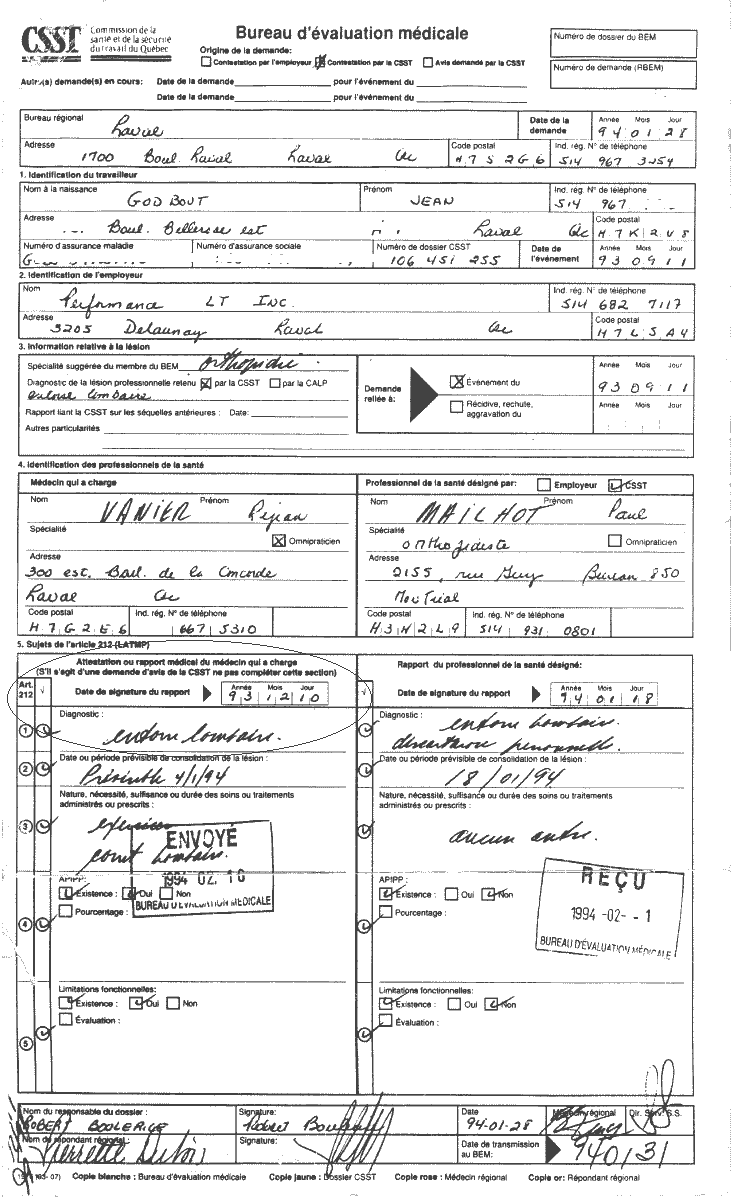 CSST Commission de la santé et de la sécurité du travail du Québec
Bureau d'évaluation médicale
Origine de la demande:
Contestation par l'employeur Contestation par la CSST Avis demandé par la CSST
Numéro de dossier du BEM
Numéro de demande (RBEM)
Autre(s) demande(s) en cours: Date de la demande pour l'événement du
Date de la demande pour l'événement du
Bureau régional
Laval
Date de la demande
Année Mois Jour
94 01 28
Adresse
1700 Boul. Laval Laval Qc
Code postal
H7S 2G6
Ind. rég. N° de téléphone
514 967 3254
1. Identification du travailleur
Nom à la naissance
GODBOUT
Prénom
JEAN
Ind. rég. N° de téléphone
514 967
Adresse
Boul. Bellerose est Laval Qc
Code postal
H7K 2V8
Numéro d'assurance maladie
Numéro d'assurance sociale
Numéro de dossier CSST
106 451 255
Date de l'événement
Année Mois Jour
93 09 11
2. Identification de l'employeur
Nom
Performance LT INC.
Ind. rég. N° de téléphone
514 682 7117
Adresse
3205 Delaunay Laval Qc
Code postal
H7L 5A4
3. Information relative à la lésion
Spécialité suggérée du membre du BEM orthopédie
Diagnostic de la lésion professionnelle retenu par la CSST par la CALP
entorse lombaire
Rapport liant la CSST sur les séquelles antérieures : Date:
Autres particularités
Demande reliée à:
Événement du
Année Mois Jour
93 09 11
Récidive, rechute, aggravation du
Année Mois Jour
4. Identification des professionnels de la santé
Médecin qui a charge
Nom Prénom
VANIER Réjean
Spécialité
Omnipraticien
Adresse
300 est, Boul. de la Concorde
Laval Qc
Code postal Ind. rég. N° de téléphone
H7G 2E6 667 5310
Professionnel de la santé désigné par: Employeur CSST
Nom Prénom
MAILHOT Paul
Spécialité
orthopédiste
Omnipraticien
Adresse
2155, rue Guy Bureau 850
Montréal
Code postal Ind. rég. N° de téléphone
H3H 2L9 514 931 0801
5. Sujets de l'article 212 (LATMP)
Attestation ou rapport médical du médecin qui a charge
(S'il s'agit d'une demande d'avis de la CSST ne pas compléter cette section)
Art. 212
Date de signature du rapport
Année Mois Jour
93 12 10
Rapport du professionnel de la santé désigné:
Date de signature du rapport
Année Mois Jour
94 01 18
1
Diagnostic :
entorse lombaire.
Diagnostic :
entorse lombaire.
discarthrose personnelle
2
Date ou période prévisible de consolidation de la lésion :
Prévisible 4/1/94
Date ou période prévisible de consolidation de la lésion :
18/01/94
3
Nature, nécessité, suffisance ou durée des soins ou traitements administrés ou prescrits :
exercices
lombaire.
Nature, nécessité, suffisance ou durée des soins ou traitements administrés ou prescrits :
aucun autre.
ENVOYÉ
1994 02. 10
BUREAU D'ÉVALUATION MÉDICALE
4
APIPP :
Existence : Oui Non
Pourcentage :
APIPP :
Existence : Oui Non
Pourcentage :
REÇU
1994 -02- -1
BUREAU D'ÉVALUATION MÉDICALE
5
Limitations fonctionnelles:
Existence : Oui Non
Évaluation :
Limitations fonctionnelles:
Existence : Oui Non
Évaluation :
Nom du responsable du dossier :
ROBERT BOULERICE
Signature:
Date
94-01-28
Médecin régional
Dir. Serv. S.S.
Nom du répondant régional :
Pierrette Dubois
Signature:
Date de transmission au BEM:
940131
Copie blanche : Bureau d'évaluation médicale Copie jaune : Dossier CSST Copie rose : Médecin régional Copie or: Répondant régional